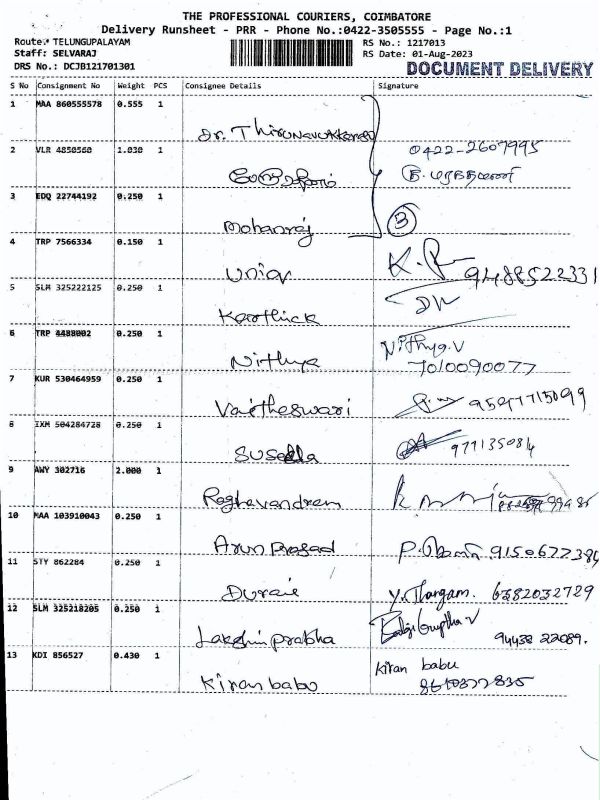 THE PROFESSIONAL COURIERS, COIMBATORE
Delivery Runsheet - PRR - Phone No.:0422-3505555 - Page No.:1
Route: TELUNGUPALAYAM
RS No.: 1217013
Staff: SELVARAJ
RS Date: 01-Aug-2023
DRS No.: DCJB121701301
DOCUMENT DELIVERY
S No Consignment No Weight PCS Consignee Details Signature
1 MAA 860555578 0.555 1
Dr. Thirunavukkarasu
2 VLR 4850560 1.030 1 0422-2607995
3 EDQ 22744192 0.250 1
Mohanraj 3
4 TRP 7566334 0.150 1
Union 9488522331
5 SLM 325222125 0.250 1
Karthick
6 TRP 4488002 0.250 1 Nithya.V
Nithya 7010090077
7 KUR 530464959 0.250 1
Vaitheswari
8 IXM 504284728 0.250 1
Suseela
9 AWY 302716 2.000 1
Raghavandram
10 MAA 103910043 0.250 1
Arun Prasad
11 STY 862284 0.250 1
Durai Y. Thangam. 6382032729
12 SLM 325218205 0.250 1
Lakshmi prabha 94438 22089.
13 KDI 856527 0.430 1 kiran babu
Kiran babu